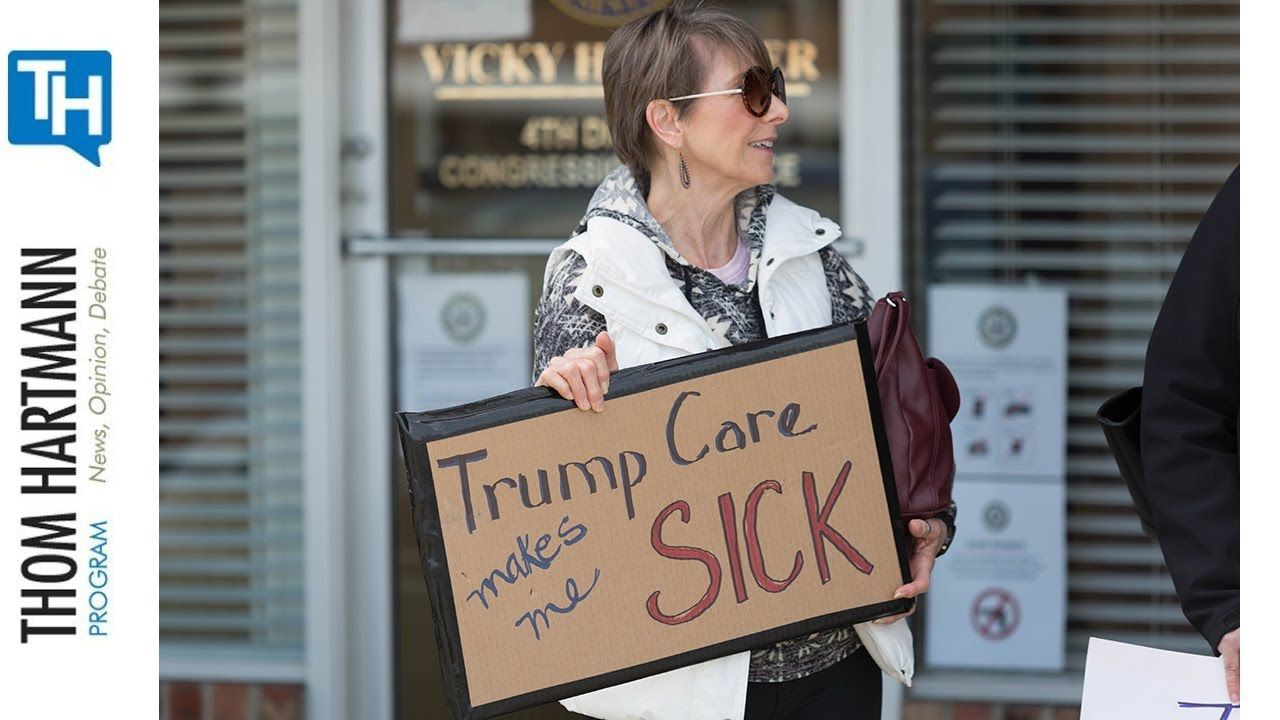 TH
THOM HARTMANN
PROGRAM
News, Opinion, Debate
VICKY
4TH
CONGRESS
Trump Care
makes
me
SICK